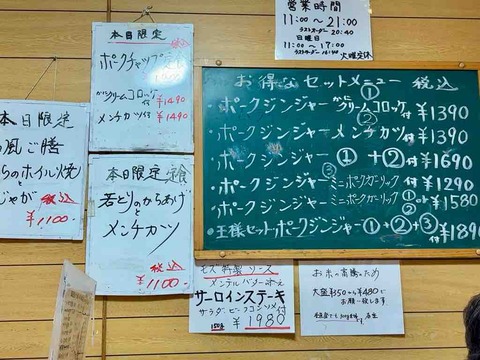 営業時間
11:00〜21:00
ラストオーダー 20:40
日曜日
11:00〜17:00
ラストオーダー 16:40
火曜定休
本日限定 税込
ポークチャップ定食
かにクリームコロッケ付 ¥1490
メンチカツ付 ¥1490
本日限定
風ご膳
らのホイル焼
と
じゃが 税込
¥1100
本日限定 定食
若とりのからあげ
と
メンチカツ
税込
¥1100
お得なセットメニュー 税込
・ポークジンジャー ① かにクリームコロッケ付 ¥1390
・ポークジンジャー ② メンチカツ付 ¥1390
・ポークジンジャー ①+②付 ¥1690
・ポークジンジャー ③ ミニポークガーリック付 ¥1290
・ポークジンジャー ミニポークガーリック ①or②付 ¥1580
・王様セットポークジンジャー①+②+③付 ¥1890
モズ特製ソース
サーロインステーキ
サラダ ビーフコンソメ付
150g ¥1980
お米の高騰のため
大盛¥350から¥480で
お願い致します